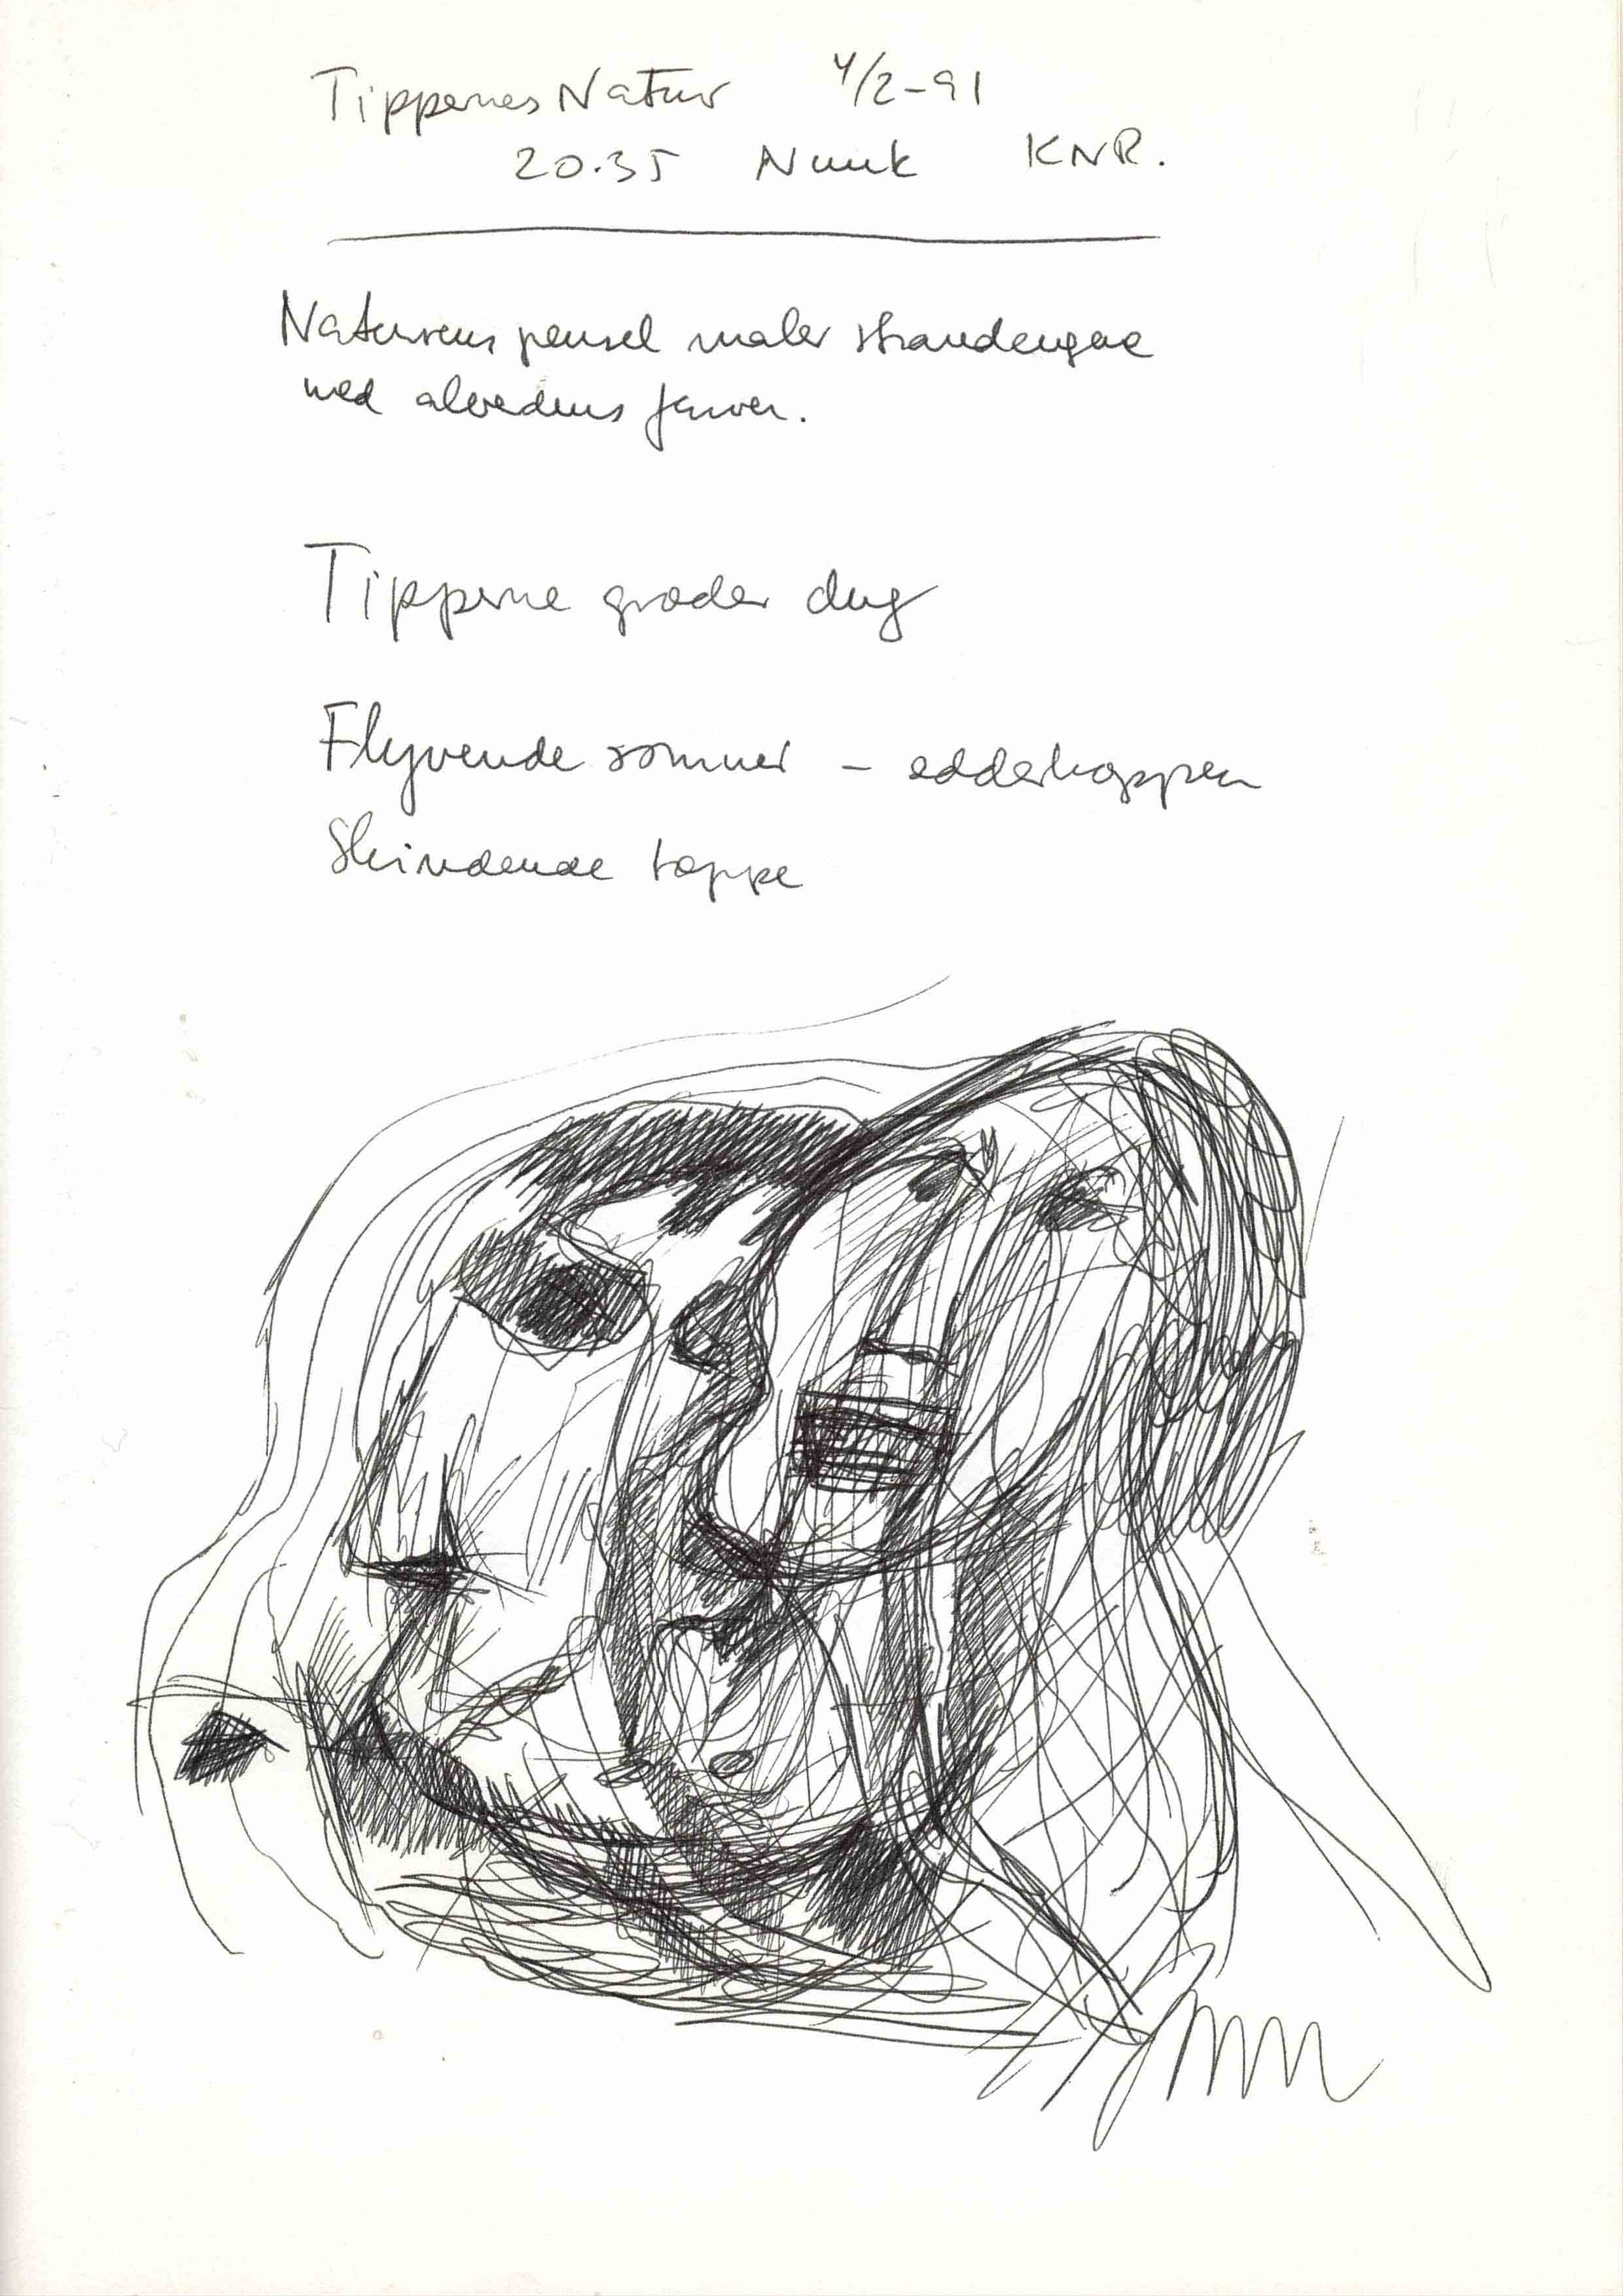 Tippernes Natur 4/2-91
20.35 Nuuk KNR.
Naturens pensel maler strandengene
med alverdens farver.
Tipperne græder dug
Flyvende sommer - edderkoppen
Skinnende tæppe